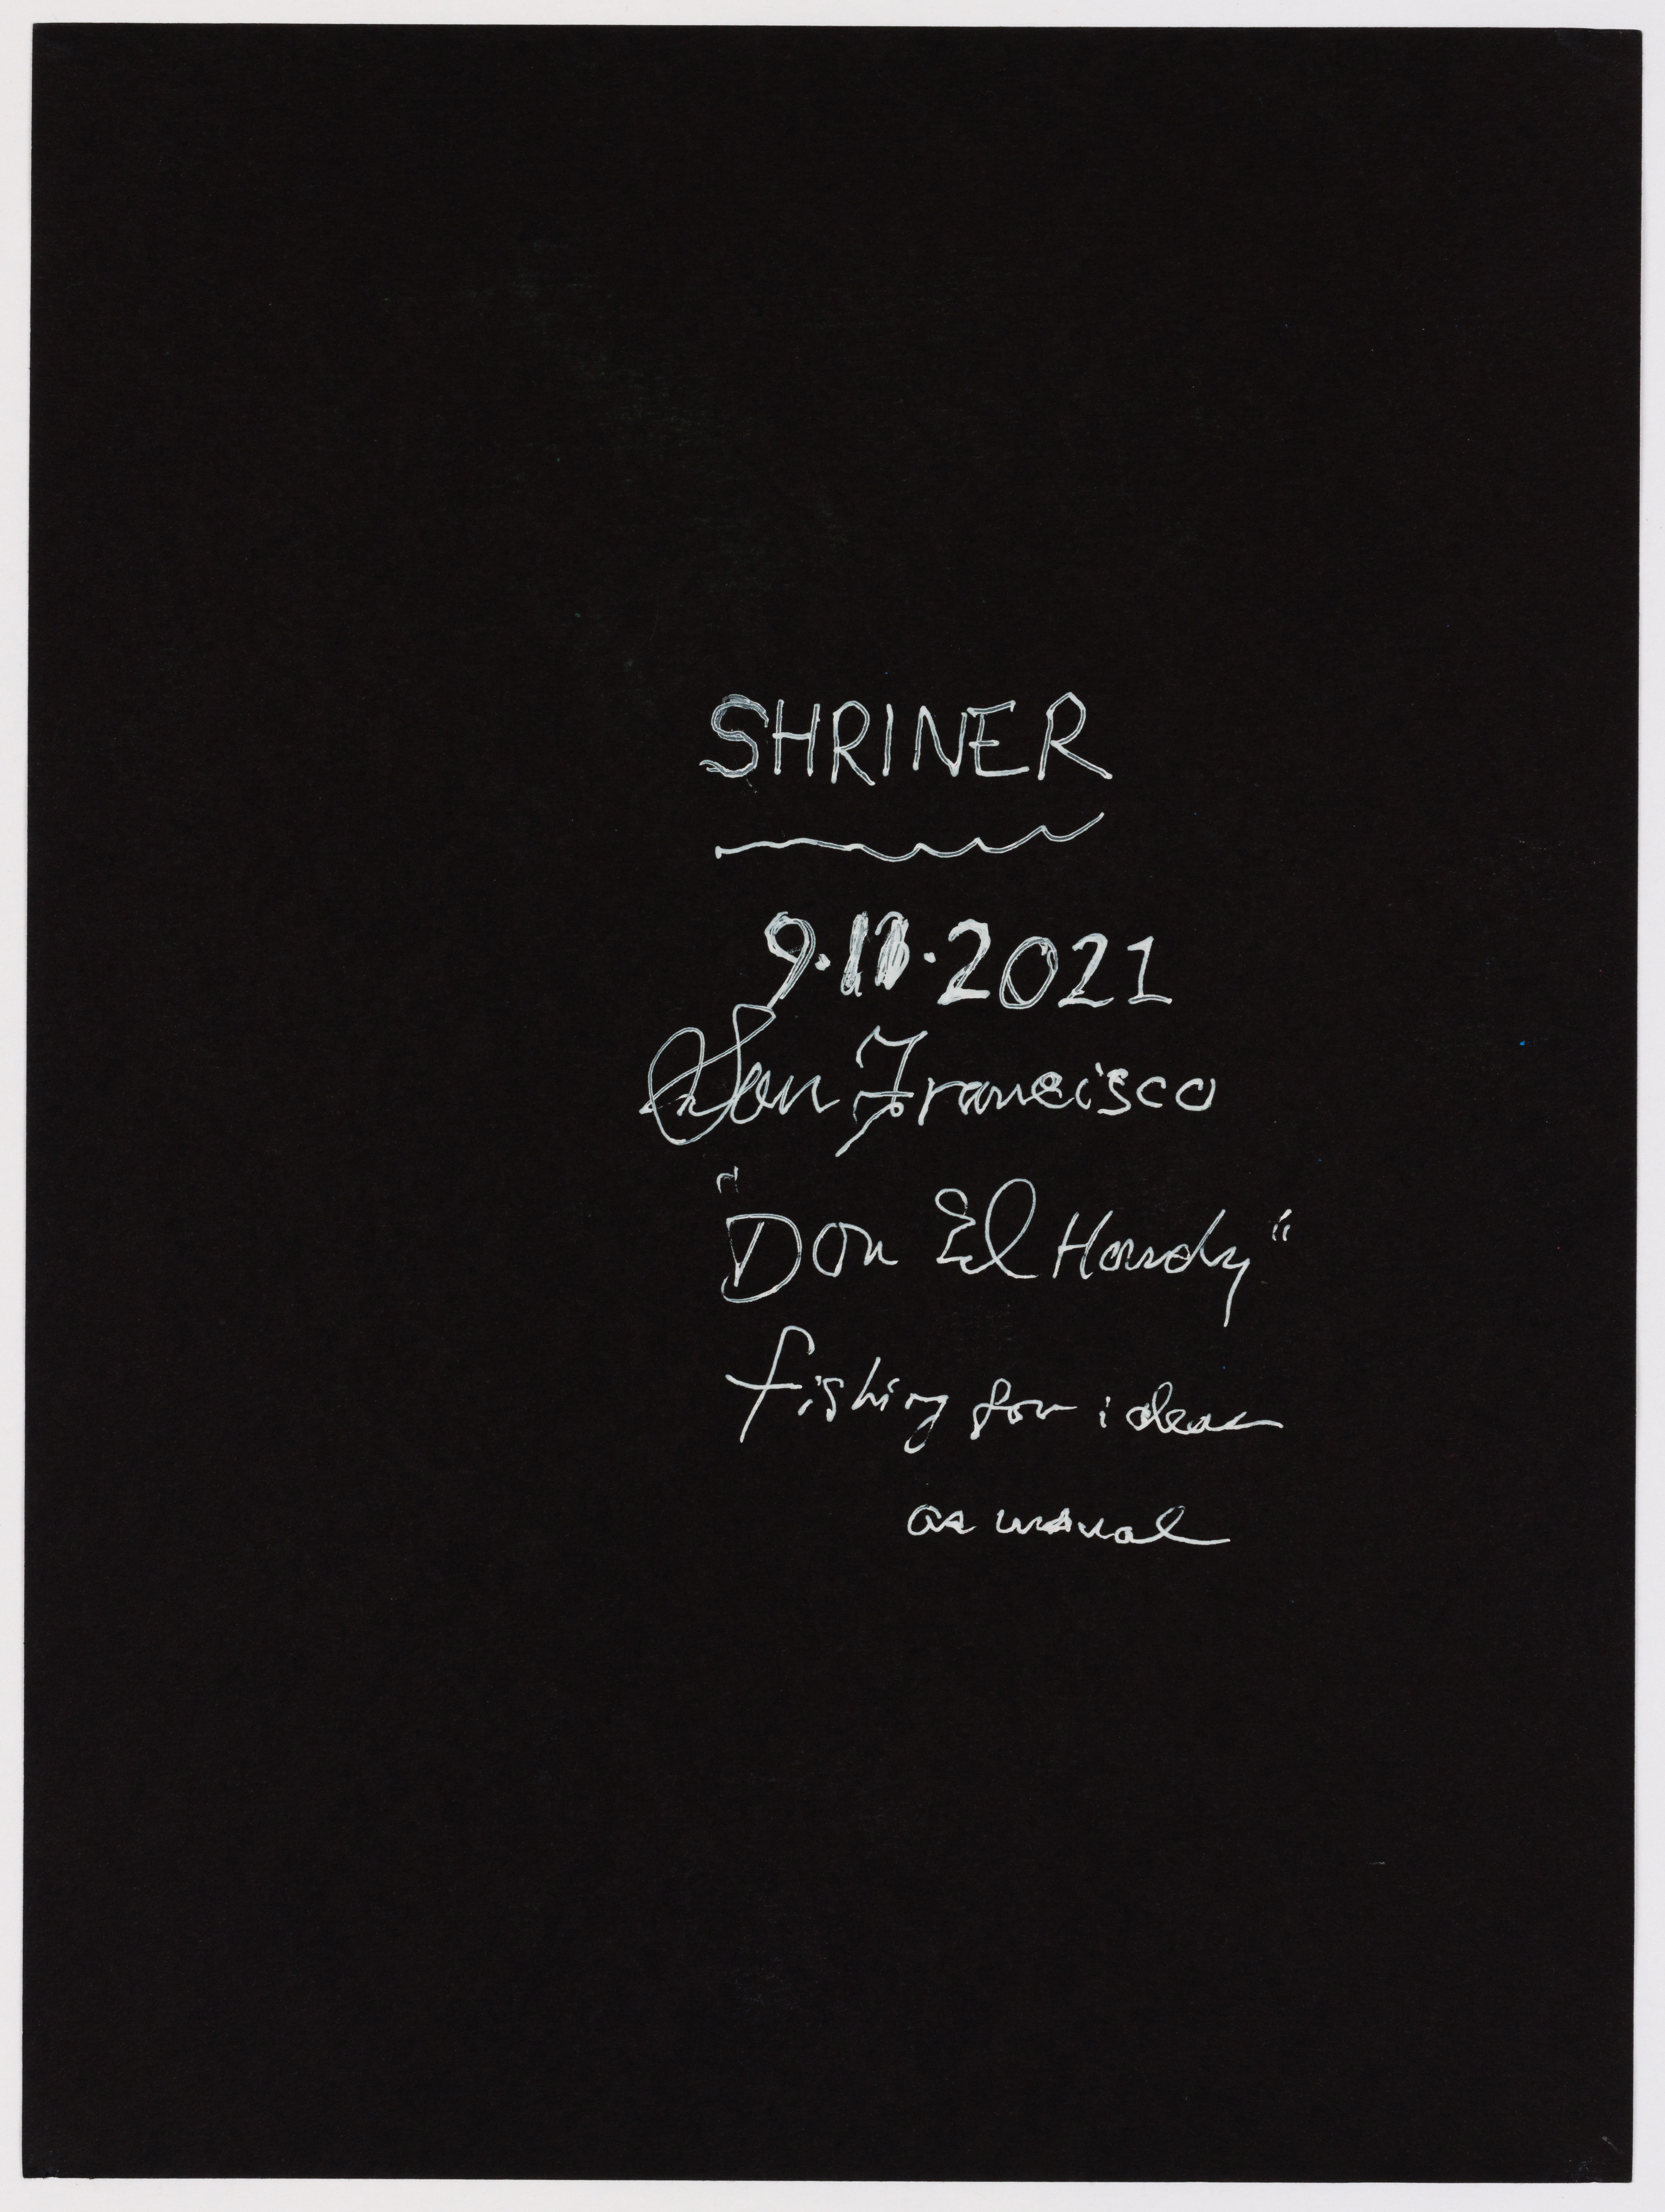 SHRINER
9. .2021
San Francisco
"Don El Hardy"
fishing for ideas
as usual